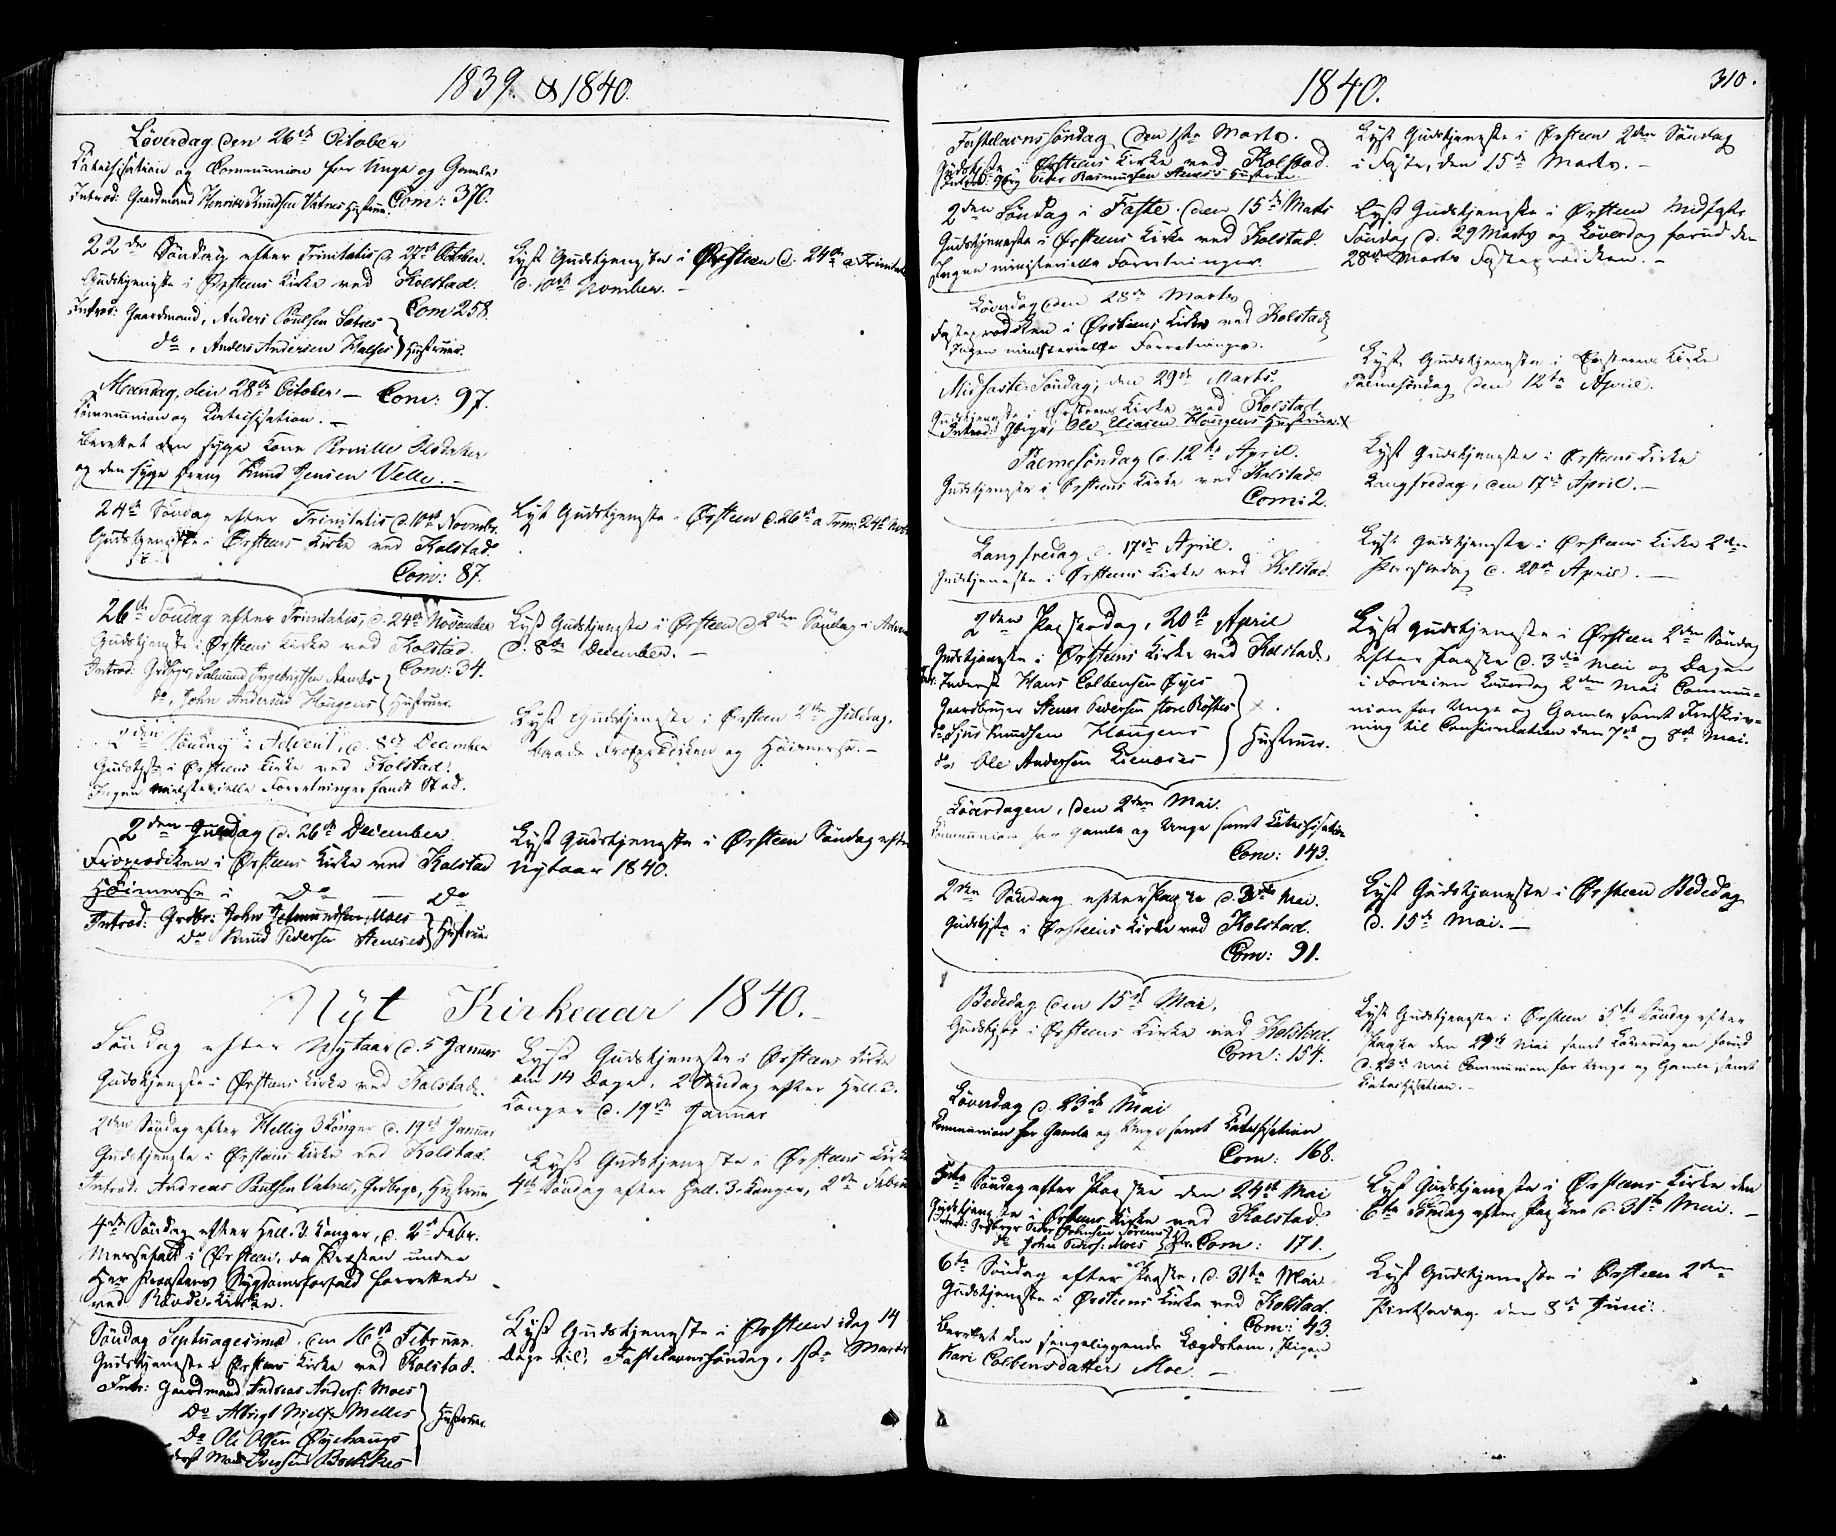 1839. & 1840.
Løverdag den 26de October
Catechisation og Communion for Unge og Gamle
Introd: Gaardmand Henrik Knudsen Vatnes Hustrue. Com: 370.
22de Søndag efter Trinitatis d. 27de October.
Gudstjeneste i Ørsteens Kirke ved Kolstad.
Com 258.
Introd: Gaardmand, Anders Poulsen Sætres
do, Anders Andersen Halses Hustruer.
Mandag, den 28de October – Com: 97.
Communion og Catechisation. –
Berettet den syge Kone Pernille
og den syge Dreng Knud Jensen Velle. –
24de Søndag efter Trinitatis d. 10de Novembr.
Gudstjeneste i Ørsteens Kirke ved Kolstad.
Com: 87.
26de Søndag efter Trinitatis, d. 24de November
Gudstjeneste i Ørsteens Kirke ved Kolstad.
Com: 34.
Introd: Grdbrgr Salmund Ingebrigtsen
do, John Andersen Hougens Hustruer.
2den Søndag i Advent, d. 8de December
Gudstjste i Ørsteens Kirke ved Kolstad.
Ingen ministerielle Forretninger fandt Sted.
2den Juledag d. 26de December
Froprædiken i Ørsteens Kirke ved Kolstad
Høimesse i Do Do
Introd: Grdbr: John Jetmundsen Moes
Do Knud Pedersen Steenses Hustruer
Lyst Gudstjeneste i Ørsteen d. 24de a Trinitat
d. 10de November. –
Lyst Gudstjeneste i Ørsteen d. 26de a Trin: 24de Nov
Lyst Gudstjeneste i Ørsteen d. 2den Søndag i Adven
d. 8de December. –
Lyst Gudstjeneste i Ørsteen 2den Juledag,
baade Froprædiken og Høimesse. –
Lyst Gudstjeneste i Ørsteen Søndag efter
Nytaar 1840.
Nyt Kirkeaar 1840. –
Søndag efter Nytaar d. 5 Januar
Gudstjeneste i Ørsteens Kirke ved Kolstad.
2den Søndag efter Hellig 3 Konger d. 19de Januar
Gudstjeneste i Ørsteens Kirke ved Kolstad.
Introd: Andreas Paulsen Vatnes, Grdbrgs, Hustrue
4de Søndag efter Hell. 3 Konger, d. 2d Febr.
Messefald i Ørsteen, da Præsten under
Hr Provstens Sygdomsforfald forrettede
ved Røvde-Kirken.
Søndag Septuagesima den 16de Februar.
Gudstjeneste i Ørsteens Kirke ved Kolstad.
Intr: Gaardmand Andreas Anders: Moes
Do Abrigt Niels: Melles
Do Ole Olsen Øyehaugs
Hustruer.
Lyst Gudstjeneste i Ørsteens Kirke
om 14 Dage, 2 Søndag efter Hell. 3
Konger d. 19de Januar
Lyst Gudstjeneste i Ørsteens Kirke
4de Søndag efter Hell. 3 Konger, 2den Febru
Lyst Gudstjeneste i Ørsteen idag 14
Dage til, Fastelavnssøndag, 1ste Marts
1840.
310.
Fastelavnssøndag den 1ste Marts.
Gudstjste i Ørsteens Kirke ved Kolstad.
2den Søndag i Faste. den 15de Marts
Gudstjeneste i Ørsteens Kirke ved Kolstad.
Ingen ministerielle Forretninger.
Løverdag den 28de Marts
Fasteprædiken i Ørsteens Kirke ved Kolstad,
Ingen ministerielle Forretninger.
Midfaste-Søndag, den 29de Marts.
Gudstjeneste i Ørsteens Kirke ved Kolstad.
Introd: Ole Eliasen Hougens Hustrue.
Palmesøndag d. 12te April.
Gudstjeneste i Ørsteens Kirke ved Kolstad
Com: 2.
Langfredag d. 17de April.
Gudstjeneste i Ørsteens Kirke ved Kolstad.
2den Paaskedag, 20de April
Gudstjeneste i Ørsteens Kirke ved Kolstad,
Inderst Hans Colbensen Øyes
Gaardbruger Stener Pedersen store Røskes
do Sjur Knudsen Hougens
do Ole Andersen
Hustruer.
Løverdagen, den 2den Mai.
Communion for Gamle og Unge samt Catechisation
Com: 143.
2den Søndag efter Paaske d. 3die Mai.
Gudstjste i Ørsteens Kirke ved Kolstad.
Com: 91.
Bededag den 15de Mai,
Gudstjste i Ørsteens Kirke ved Kolstad.
Com: 154.
Løverdag d. 23de Mai
Communion for Gamle og Unge samt Catechisation
Com: 168.
5te Søndag efter Paaske den 24de Mai
Gudstjeneste i Ørsteens Kirke ved Kolstad.
do John Peders: Moes Com: 171.
6te Søndag efter Paaske, d. 31te Mai
Gudstjeneste i Ørsteens Kirke ved Kolstad.
Com: 43.
Berettet den sengeliggende Lægdslem, Pigen
Kari Colbensdatter Moe. –
Lyst Gudstjeneste i Ørsteen 2den Søndag
i Faste, den 15de Marts. –
Lyst Gudstjeneste i Ørsteen Midfaste
Søndag d. 29 Marts og Løverdag forud den
28de Marts Fasteprædiken. –
Lyst Gudstjeneste i Ørsteens Kirke
Palmesøndag den 12te April.
Lyst Gudstjeneste i Ørsteens Kirke
Langfredag, den 17de April. –
Lyst Gudstjeneste i Ørsteens Kirke 2den
Paaskedag d. 20de April. –
Lyst Gudstjeneste i Ørsteen 2den Søndag
efter Paaske d. 3die Mai og Dagen
i Forveien Løverdag 2den Mai Commu-
nion for Unge og Gamle samt Indskriv-
ning til Confirmation den 7de og 8de Mai.
Lyst Gudstjeneste i Ørsteen Bededag
d. 15de Mai. –
Lyst Gudstjeneste i Ørsteen 5te Søndag efter
Paaske den 24de Mai samt Løverdagen forud
d. 23de Mai Communion for Unge og Gamle samt
Catechisation. –
Lyst Gudstjeneste i Ørsteens Kirke den
6te Søndag efter Paaske d. 31te Mai. –
Lyst Gudstjeneste i Ørsteen 2den
Pintsedag den 8de Juni.